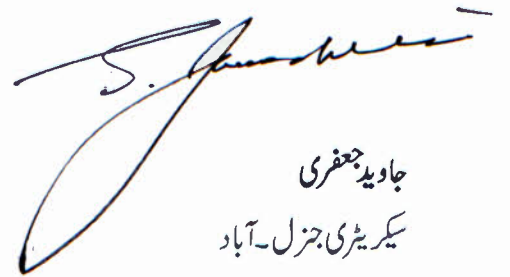 جاوید جعفری
سیکریٹری جنرل۔آباد